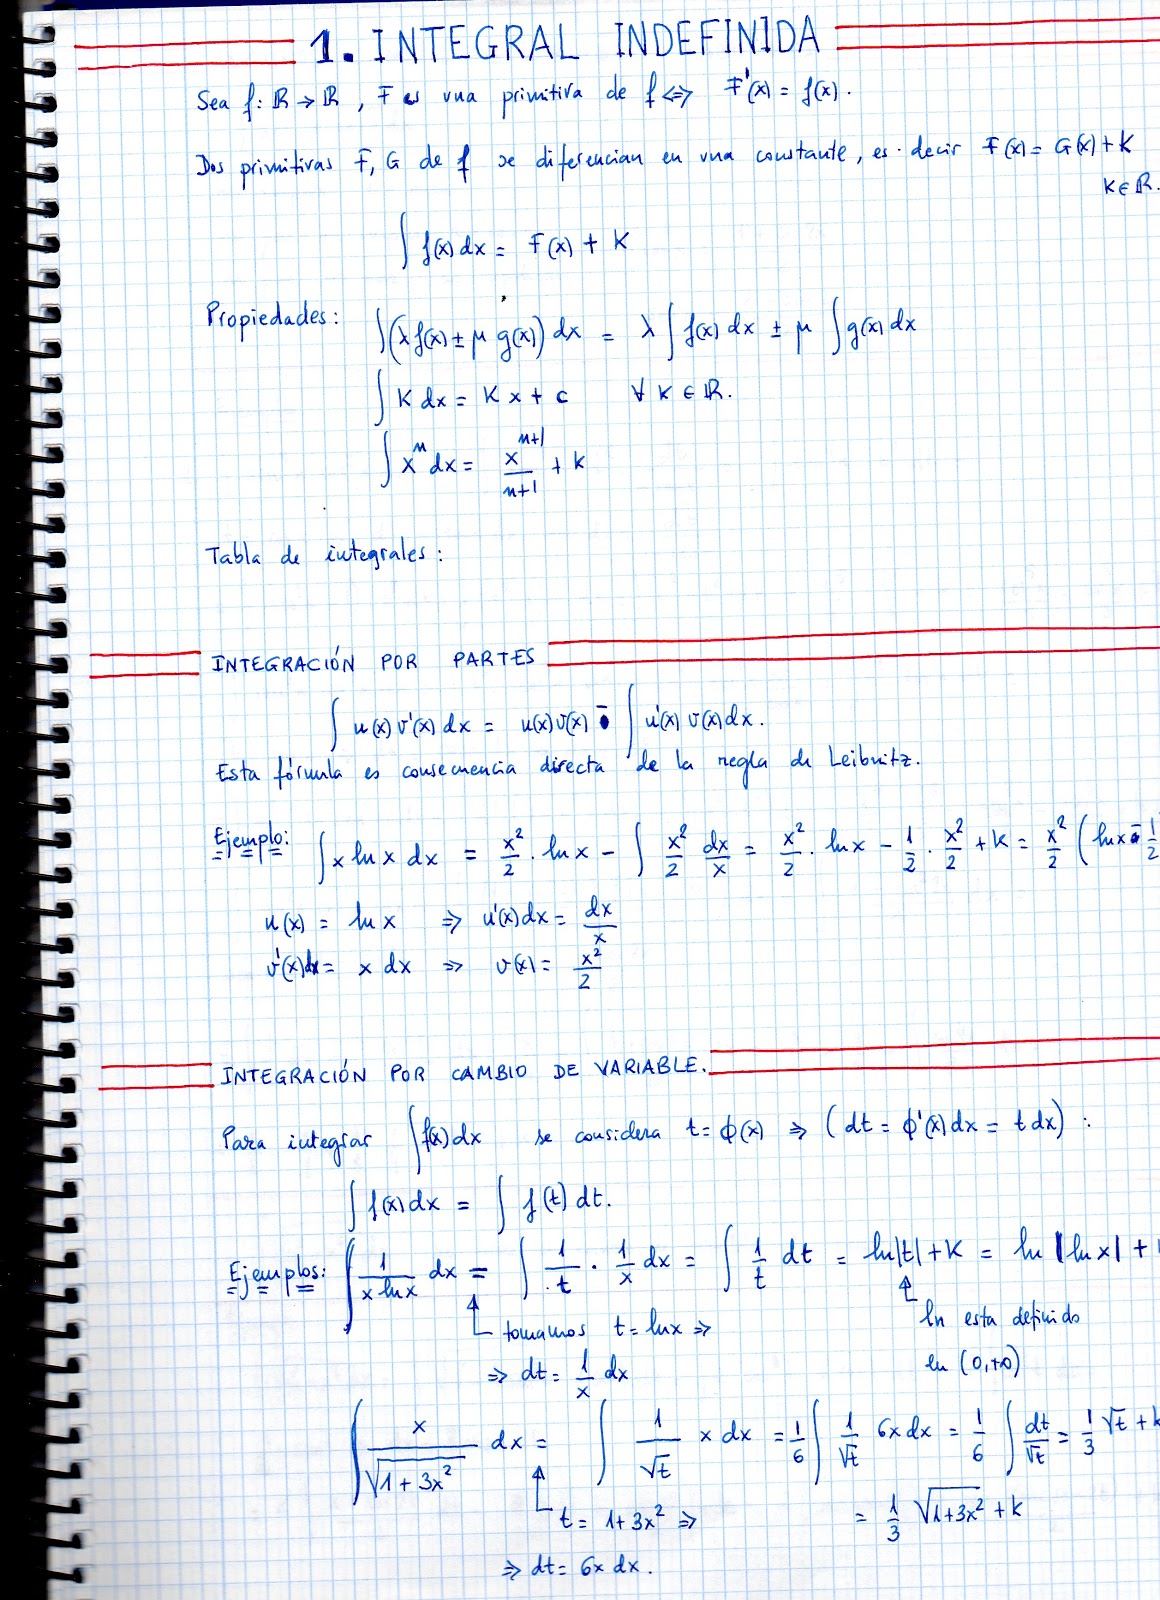 1. INTEGRAL INDEFINIDA
Sea f: ℝ → ℝ , F es una primitiva de f ⇔ F'(x) = f(x).
Dos primitivas F, G de f se diferencian en una constante, es decir F(x) = G(x) + K
K ∈ ℝ.
∫ f(x) dx = F(x) + K
Propiedades: ∫(λ f(x) ± μ g(x)) dx = λ ∫ f(x) dx ± μ ∫ g(x) dx
∫ K dx = K x + c ∀ K ∈ ℝ.
∫ x^n dx = x^(n+1)/(n+1) + k
Tabla de integrales:
INTEGRACIÓN POR PARTES
∫ u(x) v'(x) dx = u(x) v(x) - ∫ u'(x) v(x) dx.
Esta fórmula es consecuencia directa de la regla de Leibnitz.
Ejemplo: ∫ x ln x dx = x²/2 · ln x - ∫ x²/2 dx/x = x²/2 · ln x - 1/2 · x²/2 + K = x²/2 (ln x - 1/2
u(x) = ln x ⇒ u'(x) dx = dx/x
v'(x) dx = x dx ⇒ v(x) = x²/2
INTEGRACIÓN POR CAMBIO DE VARIABLE.
Para integrar ∫ f(x) dx se considera t = ϕ(x) ⇒ (dt = ϕ'(x) dx = t dx) :
∫ f(x) dx = ∫ f(t) dt.
Ejemplos: ∫ 1/(x ln x) dx = ∫ 1/t · 1/x dx = ∫ 1/t dt = ln|t| + K = ln |ln x| +
tomamos t = ln x ⇒
ln esta definido
⇒ dt = 1/x dx
en (0,+∞)
∫ x/√(1 + 3x²) dx = ∫ 1/√t x dx = 1/6 ∫ 1/√t 6x dx = 1/6 ∫ dt/√t = 1/3 √t + k
t = 1 + 3x² ⇒
= 1/3 √(1+3x²) + k
⇒ dt = 6x dx.